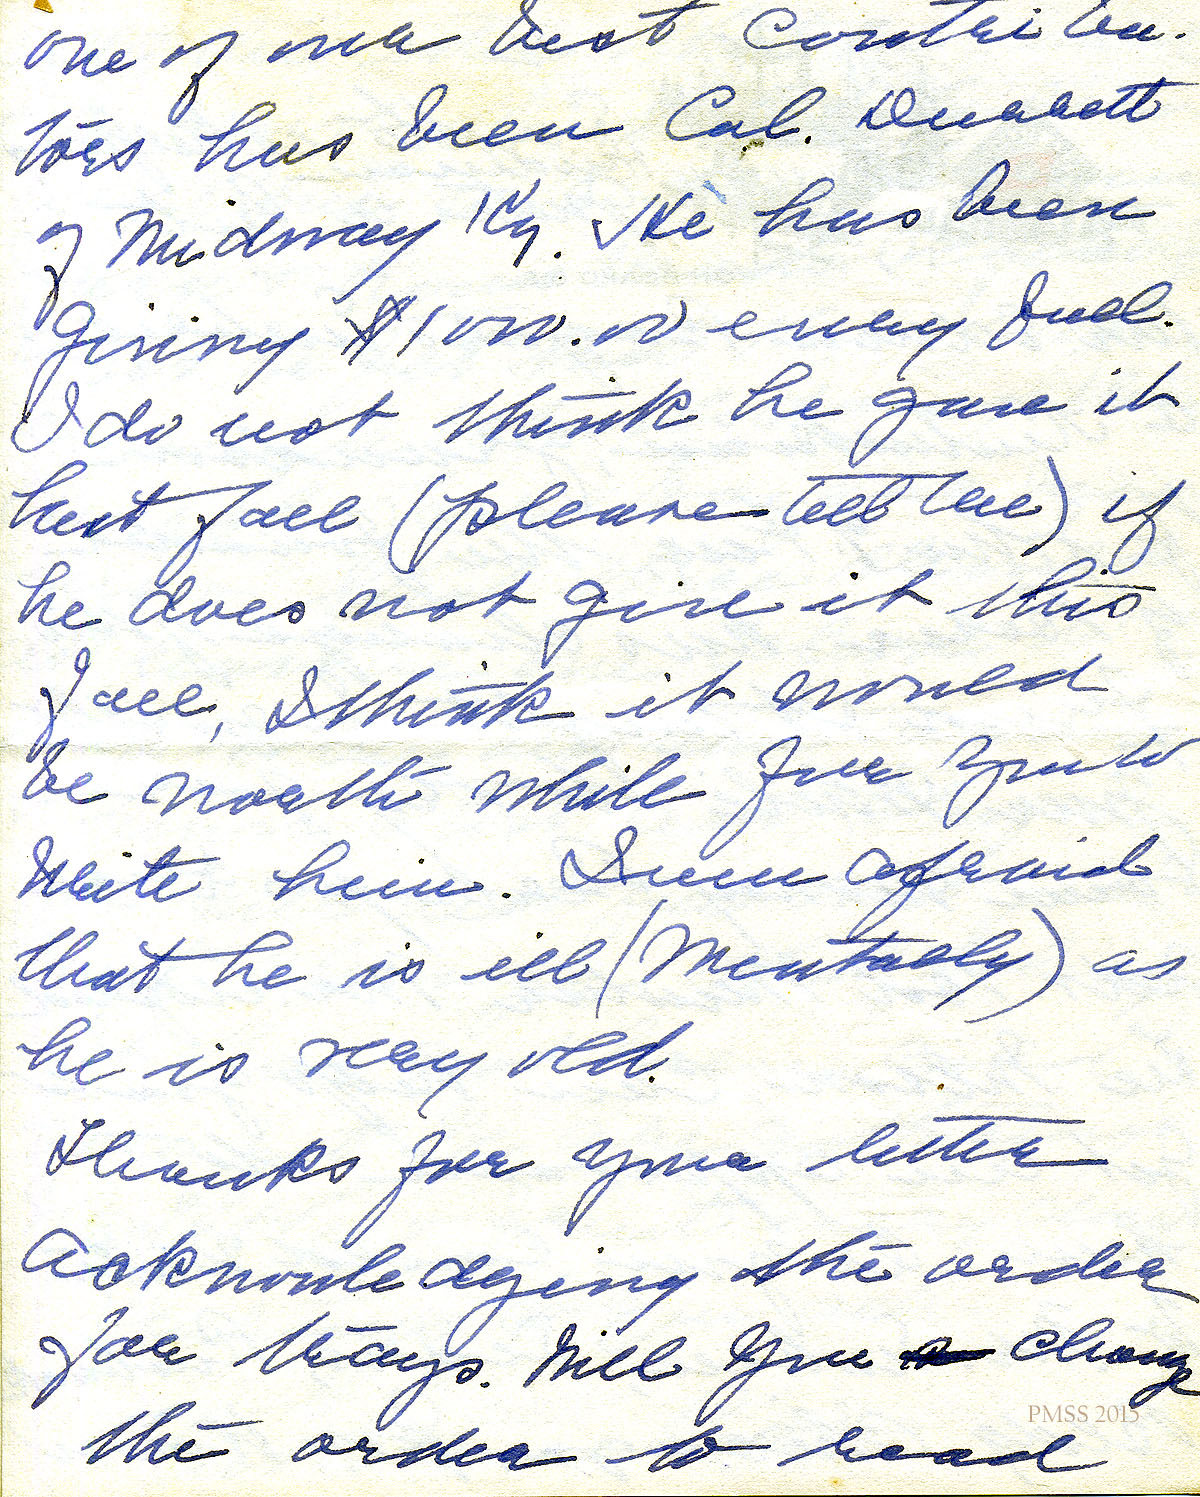 one of our best contribu-
tors has been Col.
of Midway Ky. He has been
giving $100.00 every fall.
I do not think he gave it
last fall (please tell me) if
he does not give it this
fall, I think it would
be worth while for you to
write him. I am afraid
that he is ill (mentally) as
he is very old.
Thanks for your letter
acknowledging the order
for trays. Will you change
the order to read
PMSS 2015